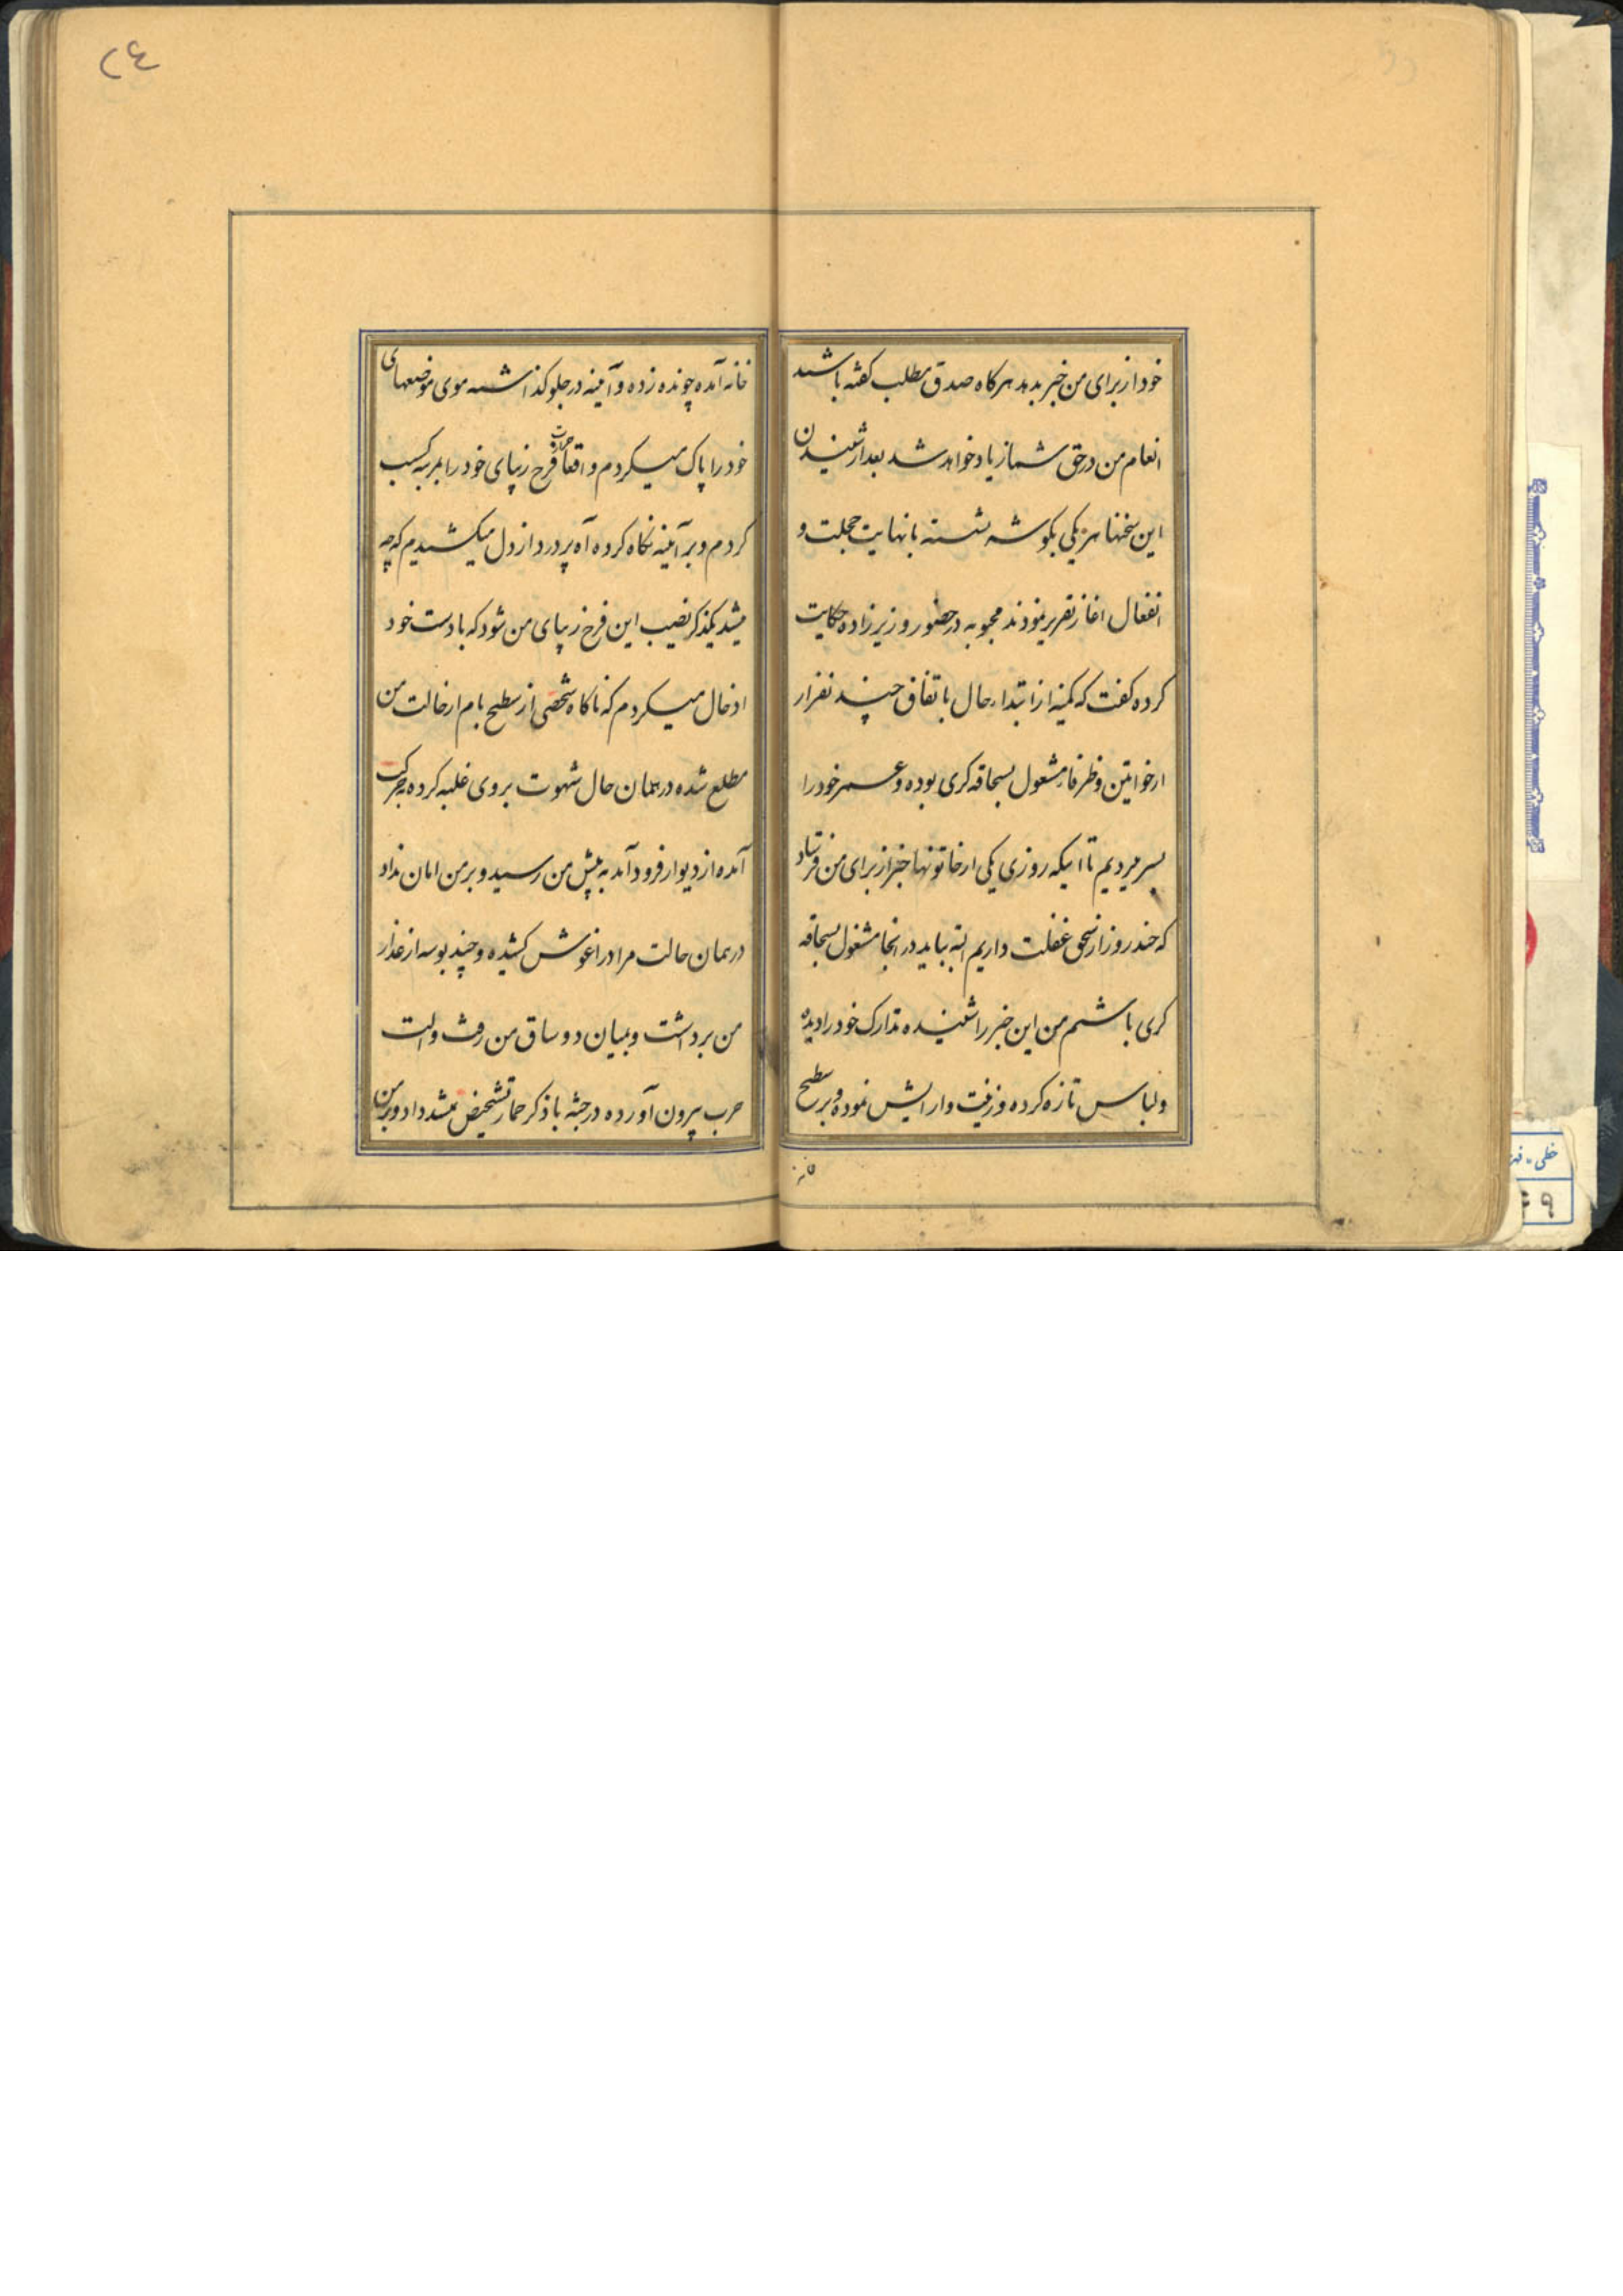 خود از برای من خبر بدید هرکاه صدق مطلب کفته باشید
انعام من در حق شما زیاد خواهد شد بعد از شنیدن
این سخنها هر یکی بکوشه نشسته با نهایت خجلت و
انفعال اغاز تقریر نمودند محبوبه در حضور وزیر زاده حکایت
کرده کفت که کمینه از ابتداء حال باتفاق چند نفر از
از خواتین و ظرفاء مشغول بسحاقه کری بوده و عمر خود را
بسر میبردیم تا اینکه روزی یکی از خاتونها خبر از برای من فرستاد
که چند روز از سحق غفلت داریم البته بیاید در انجا مشغول بسحاقه
کری باشیم من این خبر را شنیده تدارک خود را دیده
و لباس تازه کرده و زینت و ارایش نموده و بر سطح
خانه
۲۴
خانه آمده چونده زده و آینه در جلو کذاشته موی موضعهای
خود را پاک میکردم و اقعاً فرج زیبای خود را بمربه کسب
کردم و بر آینه نکاه کرده آه پر درد از دل میکشیدم که چه
میشد یکذکر نصیب این فرج زیبای من شود که با دست خود
ادخال میکردم که ناکاه شخصی از سطح بام از حالت من
مطلع شده در همان حال شهوت بر وی غلبه کرده بحرکت
آمده از دیوار فرود آمد به پیش من رسید و بر من امان نداد
در همان حالت مرا در اغوش کشیده و چند بوسه از عذار
من برداشت و بمیان دو ساق من رفت و الت
حرب بیرون آورده در جثه با ذکر حمار تشخیص نمیشد داد و بر من
خطی - فهر
۴۹